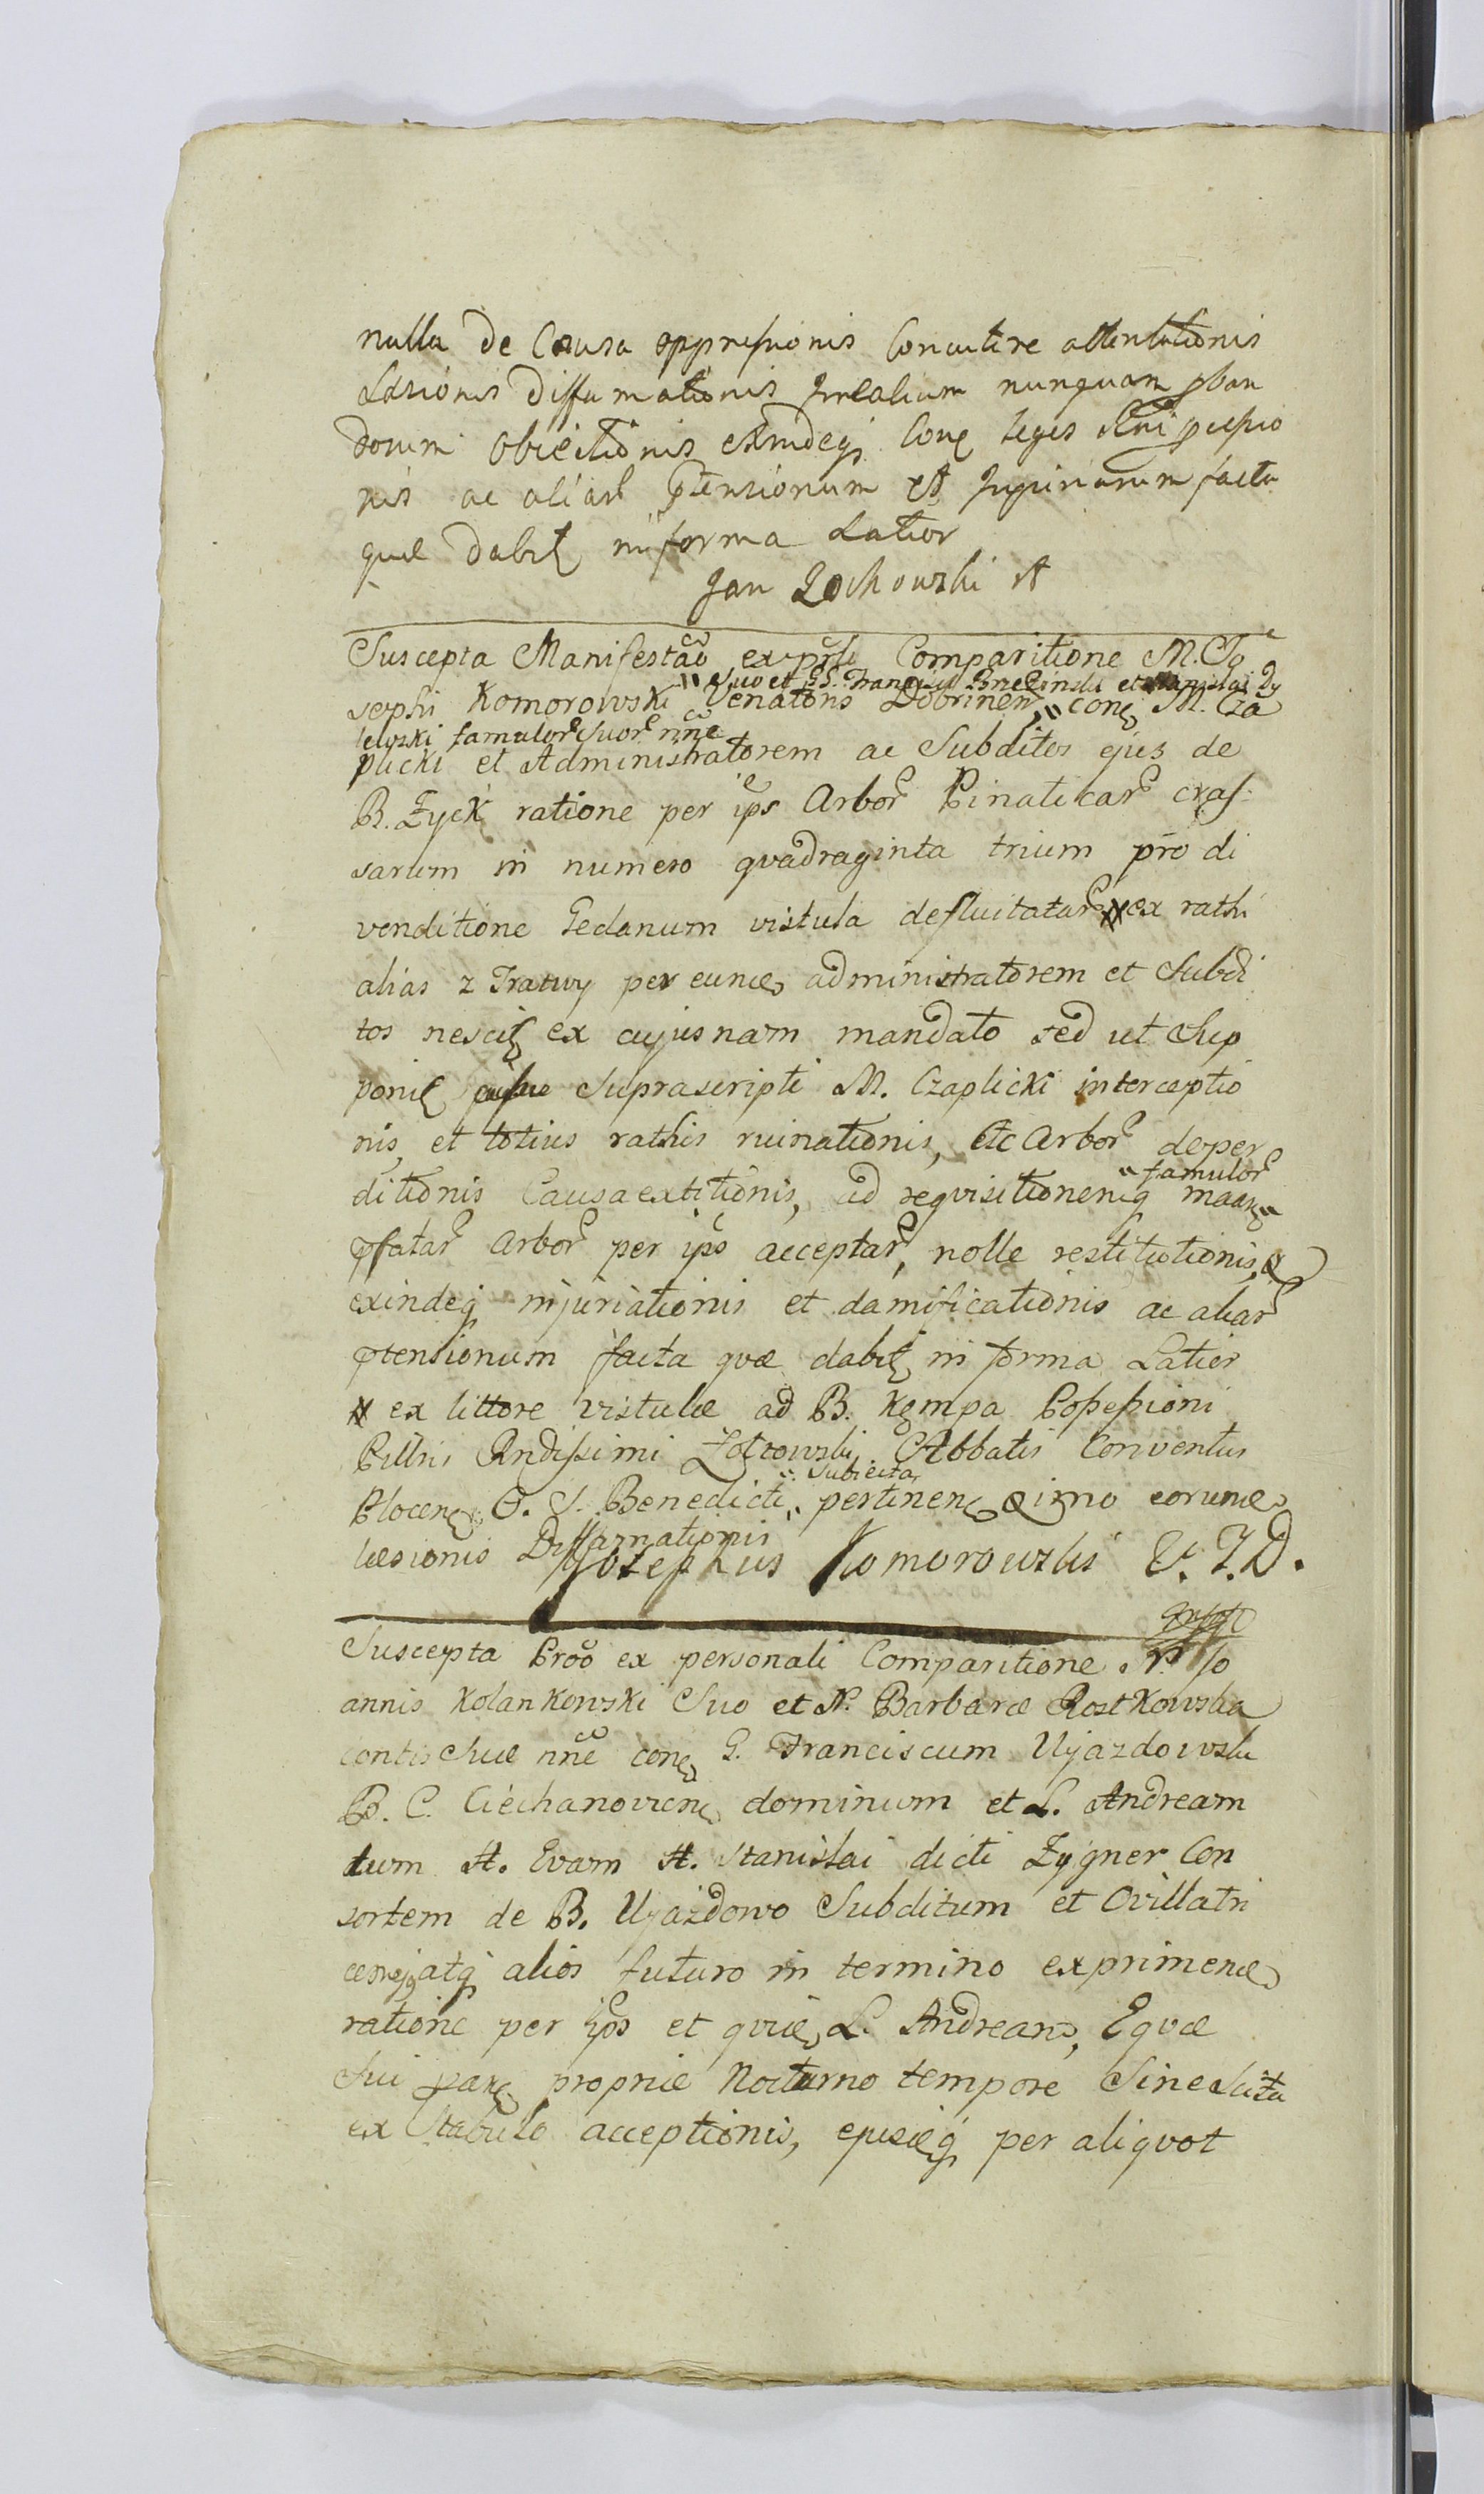 nulla de Causa oppressionis Concutere attentationis
Læsionis Diffamationis realium nunquam pban
dorum obiectionis Exindeq Conę leges Rni pressio
nis ac aliar ptensionum et Injuriarum facta
quæ dabit in forma Latior
Jan Zochowski A
Suscepta Manifestao ex prsli Comparitione M. Jo
" suo et GG. Francisci Brzezinski et Stanislai Dy
sephi Komorowski Venatoris Dobrinen " conę M. Cza
famulor suor nne
plicki et Administratorem ac Subditos ejus de
B. Łyck ratione per ips Arbor Pinaticar cras:
sarum in numero qvadraginta trium pro di
venditione Gedanum vistula defluitatar # ex rathi
alias z Tratwy per eund administratorem et Subdi
tos nescit ex cujusnam mandato sed ut Sup
ponit Suprascripti M. Czaplicki interceptio
nis, et totius rathis ruinationis, etc Arbor deper
" famulor
ditionis Causa extitionis, ad reqvisitionemq "
pfatar Arbor per ips acceptar, nolle restitutionis, &
exindeq injuriationis et damificationis ac aliar
ptensionum facta qvæ dabit in forma Latior
# ex littore vistulæ ad B. Kępa Possessioni
Rndissimi Abbatis Conventus
" Subiecta
Plocen O. S. Benedicti " pertinen & imo eorund
læsionis Diffamationis
Josephus Komorowski V. T. D.
Suscepta Proo ex personali Comparitione N. Jo
annis Kolankowski Suo et N. Barbaræ Rostkowska
contis Suæ nne conę G. Franciscum Ujazdowski
B. C. Ciechanovien dominum et L. Andream
tum H. Evam H. Stanislai dicti Zygner Con
sortem de B. Ujazdowo Subditum et Ovillatri
cem atq alios futuro in termino exprimend
ratione per ips et qvid L. Andream, Eqvæ
Sui parę propriæ Nocturno tempore Sine Scitu
ex Stabulo acceptionis, ejusdq per aliqvot